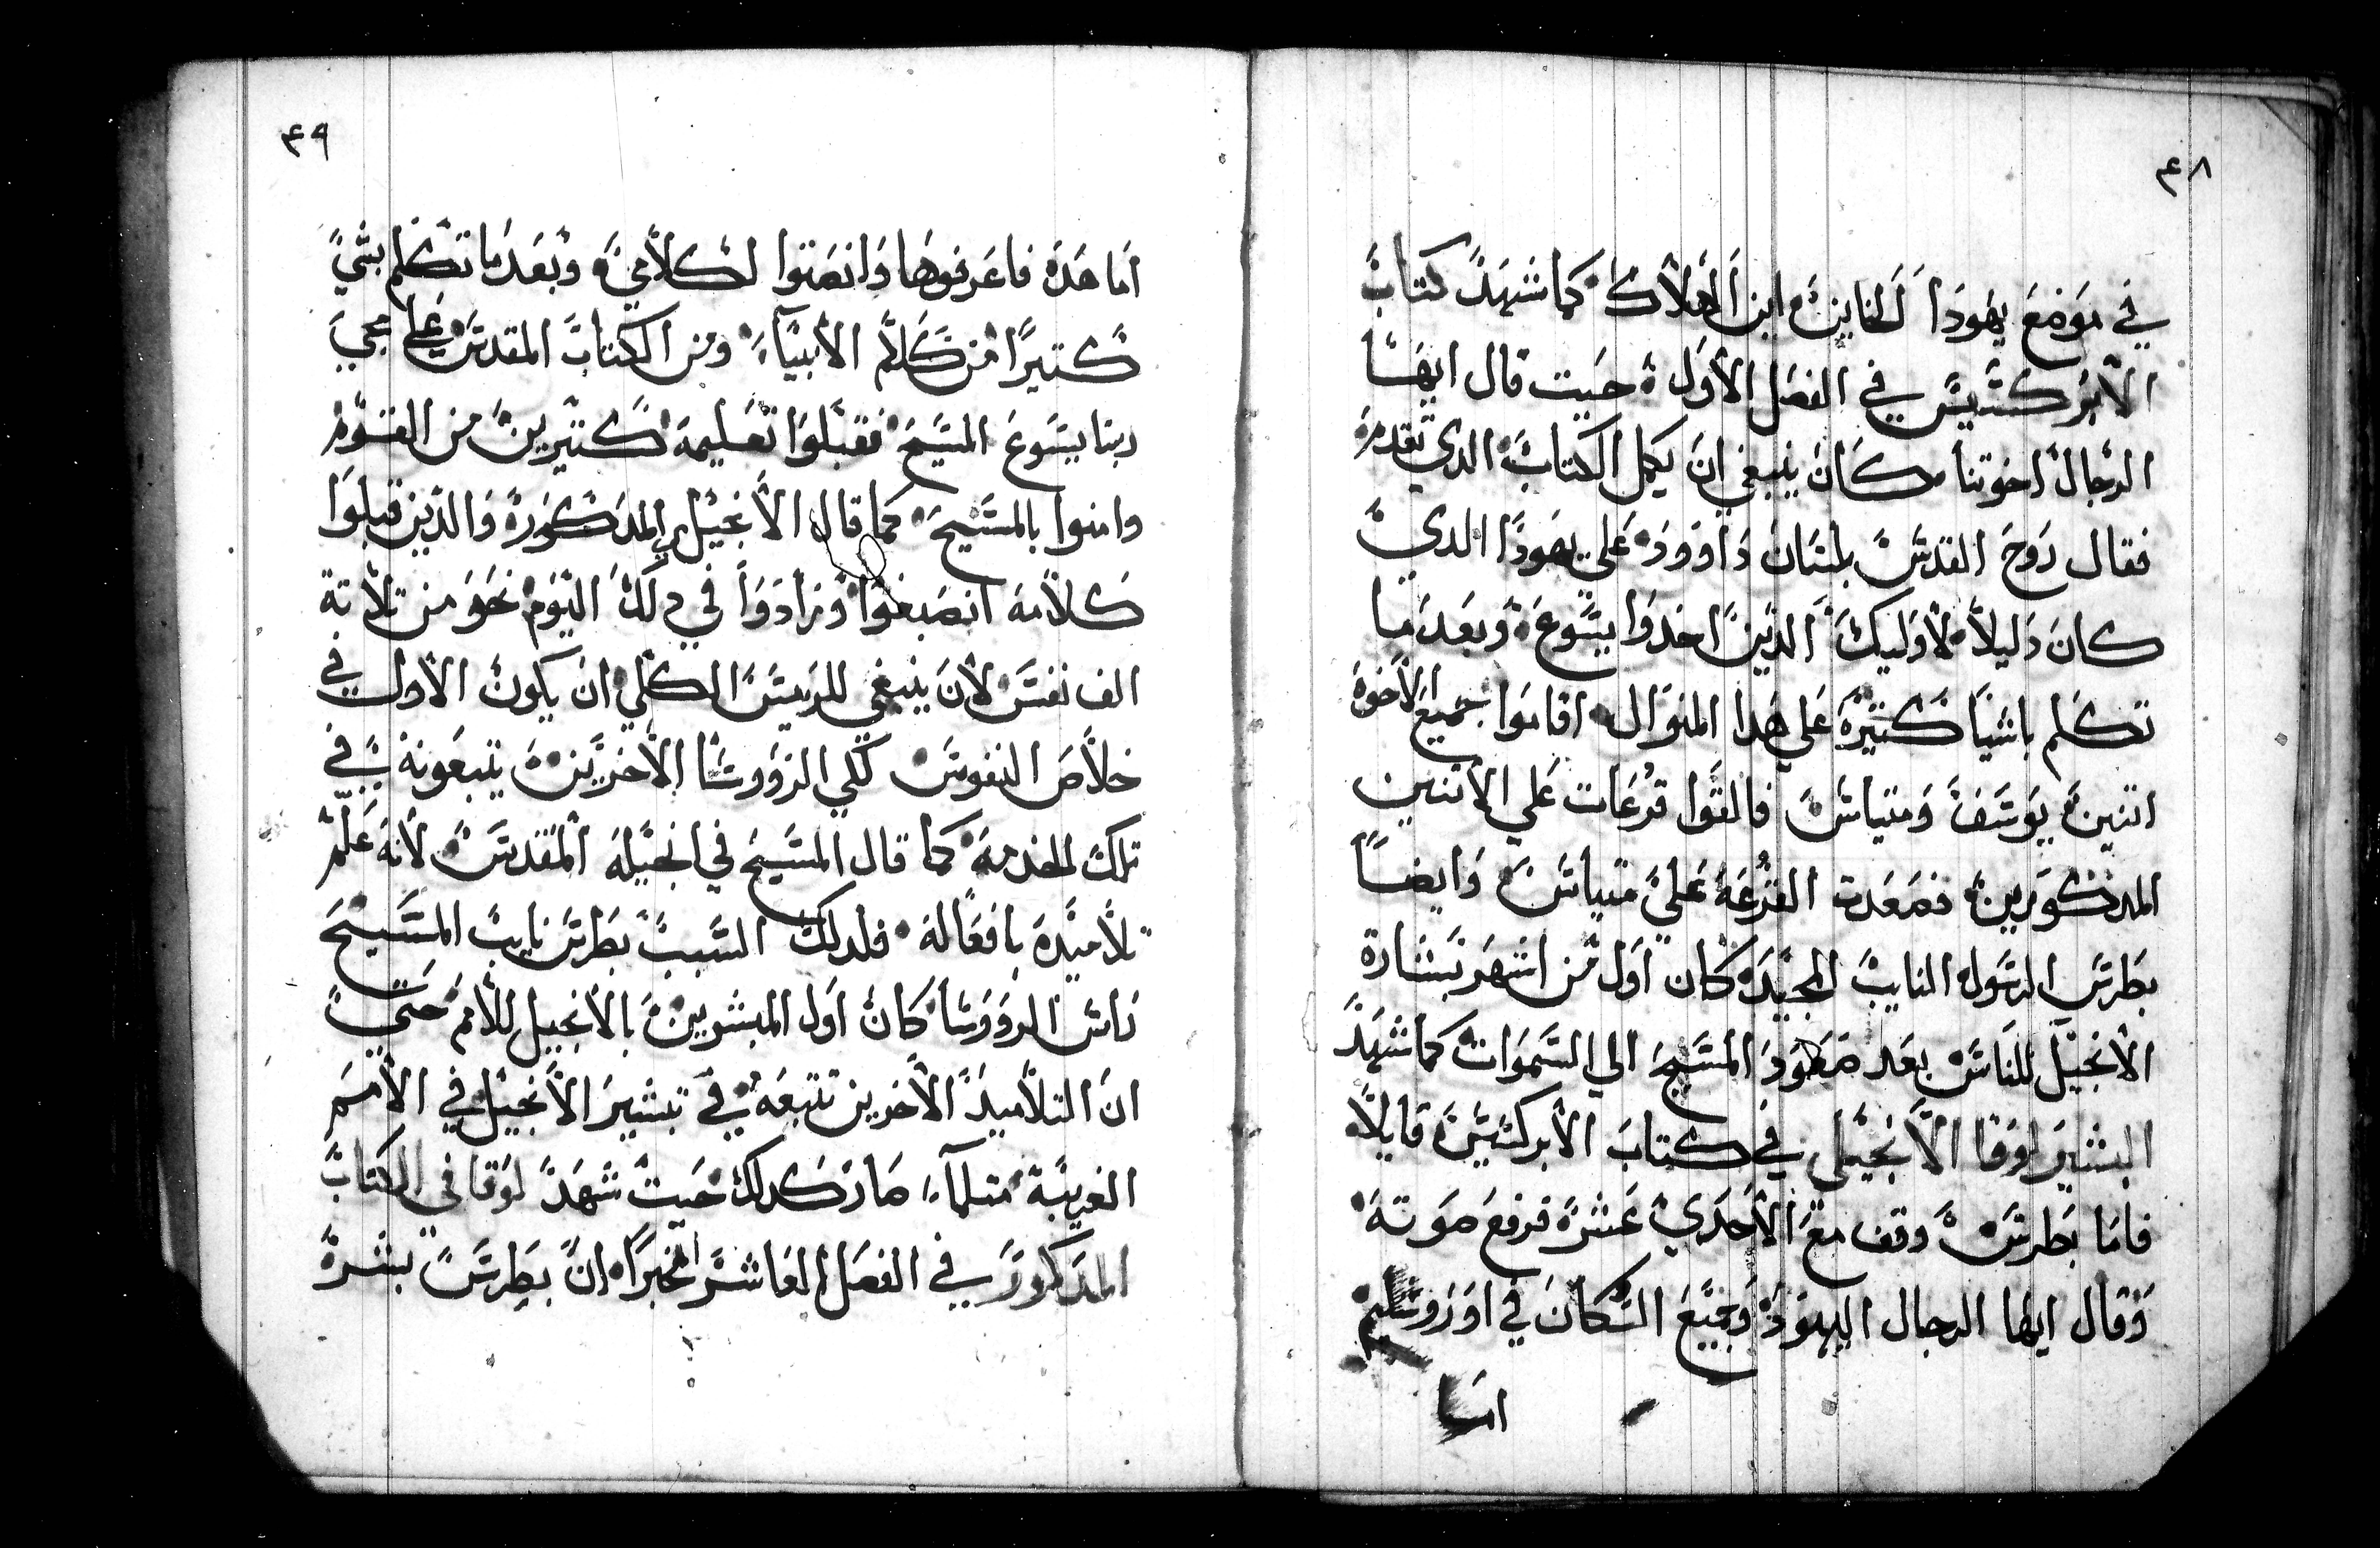 ٤٨
في موضع يهودا الخاين ابن الهلاك كما شهد كتاب
الابركسيس في الفصل الأول حيت قال ايها
الرجال اخوتنا كان ينبغي ان يكمل الكتاب الدي تقدم
فقال روح القدس بلسان داوود علي يهودا الدي
كان دليلا لأوليك الدين اخدوا يسوع وبعد ما
تكلم باشيا كتيرة علي هدا المنوال اقاموا جميع الاخوة
اتنين يوسف ومتياس فالقوا قرعات علي الاتنين
المدكورين فصعدت القرعة علي متياس وايضا
بطرس الرسول النايب المجيد كان اول من اشهر بشارة
الانجيل للناس بعد صعود المسيح الي السموات كما شهد
البشير لوقا الانجيلي في كتاب الابركسيس قايلا
فاما بطرس وقف مع الاحدي عشر فرفع صوته
وقال ايها الرجال اليهود وجميع السكان في اوروشليم
اما
٤٩
اما هده فاعرفوها وانصتوا لكلامي وبعد ما تكلم بشي
كتيرا من كلام الانبياء ومن الكتاب المقدس علي مجي
ربنا يسوع المسيح فقبلوا تعليمه كتيرين من القوم
وامنوا بالمسيح كما قال الانجيل المدكور والدين قبلوا
كلامه انصبغوا وزادوا في دلك اليوم نحو من تلاتة
الف نفس لأن ينبغي للريس الكلي ان يكون الأول في
خلاص النفوس لكي الرووسا الاخرين يتبعونه في
تلك الخدمة كما قال المسيح في انجيله المقدس لأنه علم
تلاميده بافعاله فلدلك السبب بطرس نايب المسيح
راس الروووسا كان اول المبشرين بالانجيل للأمم حتي
ان التلاميد الاخرين تتبعه في تبشير الانجيل في الأمم
الغريبة متلما صار كدلك حيت شهد لوقا في الكتاب
المدكور في الفصل العاشر مخبرا ان بطرس بشر